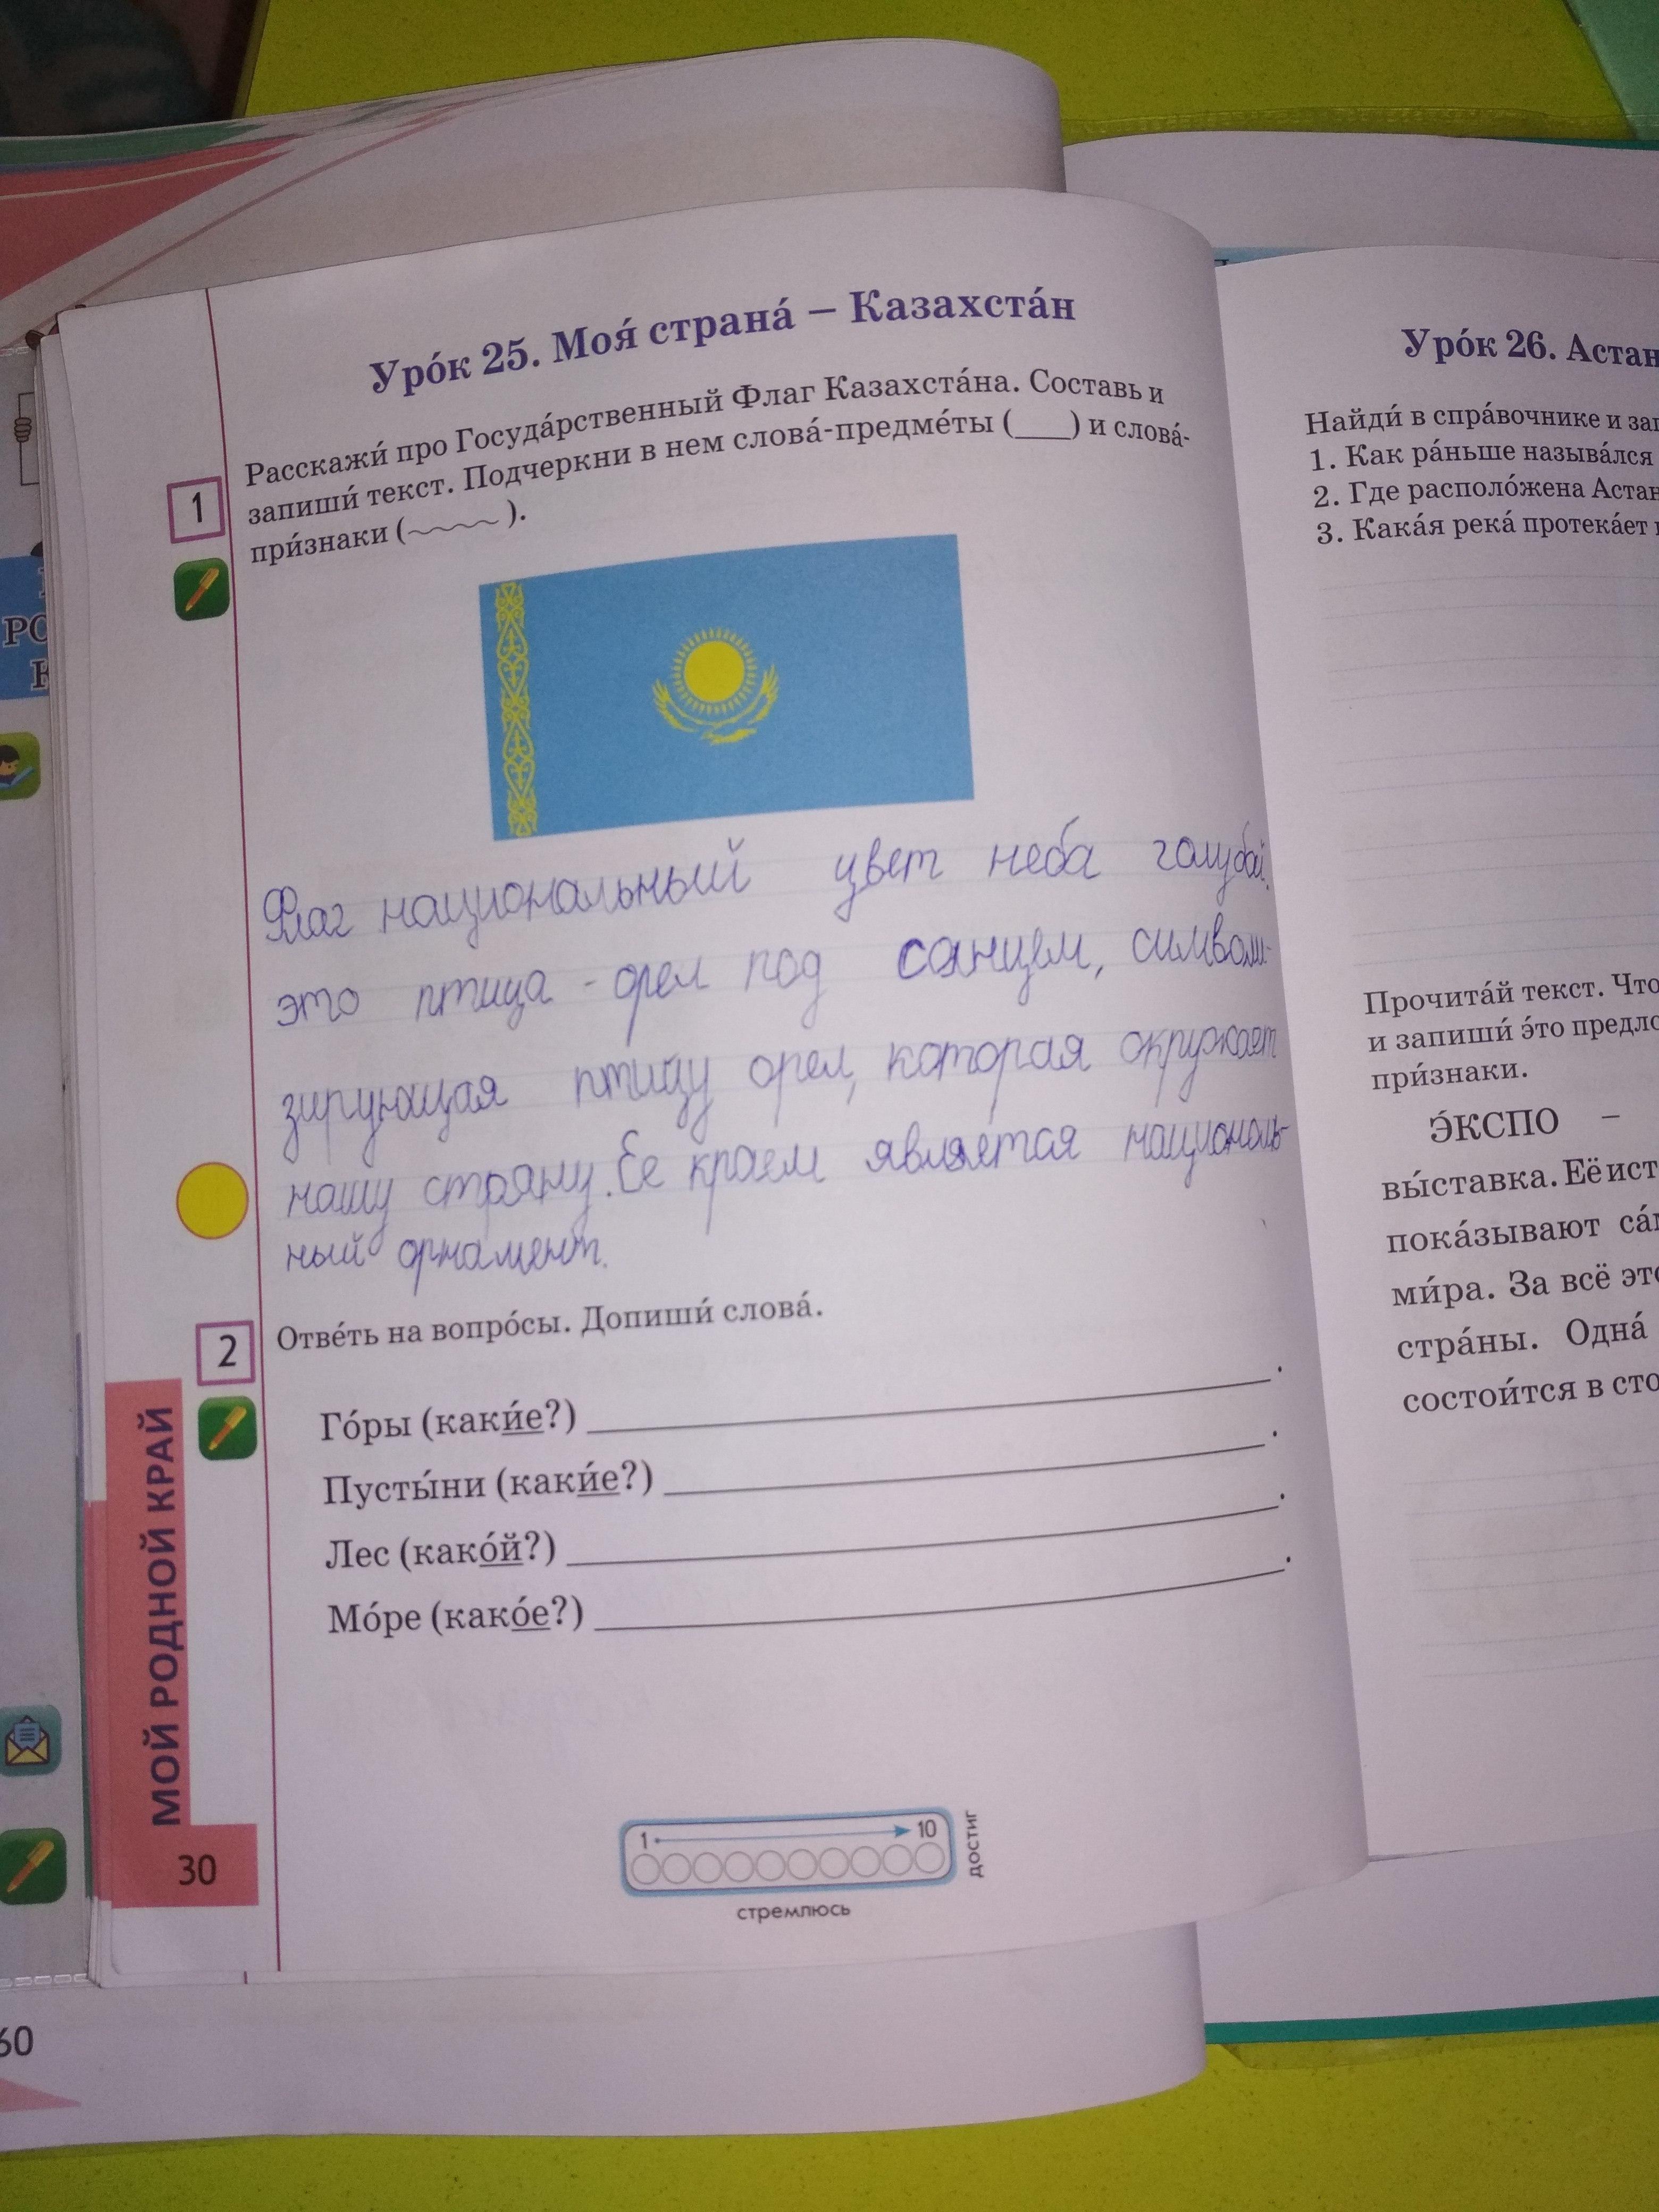 Уро́к 25. Моя́ страна́ – Казахста́н
1
Расскажи́ про Госуда́рственный Флаг Казахста́на. Составь и
запиши́ текст. Подчеркни в нем слова́-предме́ты (___) и слова́-
при́знаки (﹏﹏).
Флаг национальный цвет неба голубой.
это птица - орел под санцем, символи-
зирующая птицу орел, которая окружает
нашу страну. Ее краем является националь-
ный орнамент.
2
Отве́ть на вопро́сы. Допиши́ слова́.
Го́ры (каки́е?) ___.
Пусты́ни (каки́е?) ___.
Лес (како́й?) ___.
Мо́ре (како́е?) ___.
МОЙ РОДНОЙ КРАЙ
30
1 10
достиг
стремлюсь
60
Уро́к 26. Астан
Найди́ в спра́вочнике и зап
1. Как ра́ньше называ́лся
2. Где располо́жена Астан
3. Кака́я река́ протека́ет
Прочита́й текст. Что
и запиши́ э́то предло
при́знаки.
Э́КСПО –
вы́ставка. Её ист
пока́зывают са́м
ми́ра. За всё это
стра́ны. Одна́
состои́тся в сто